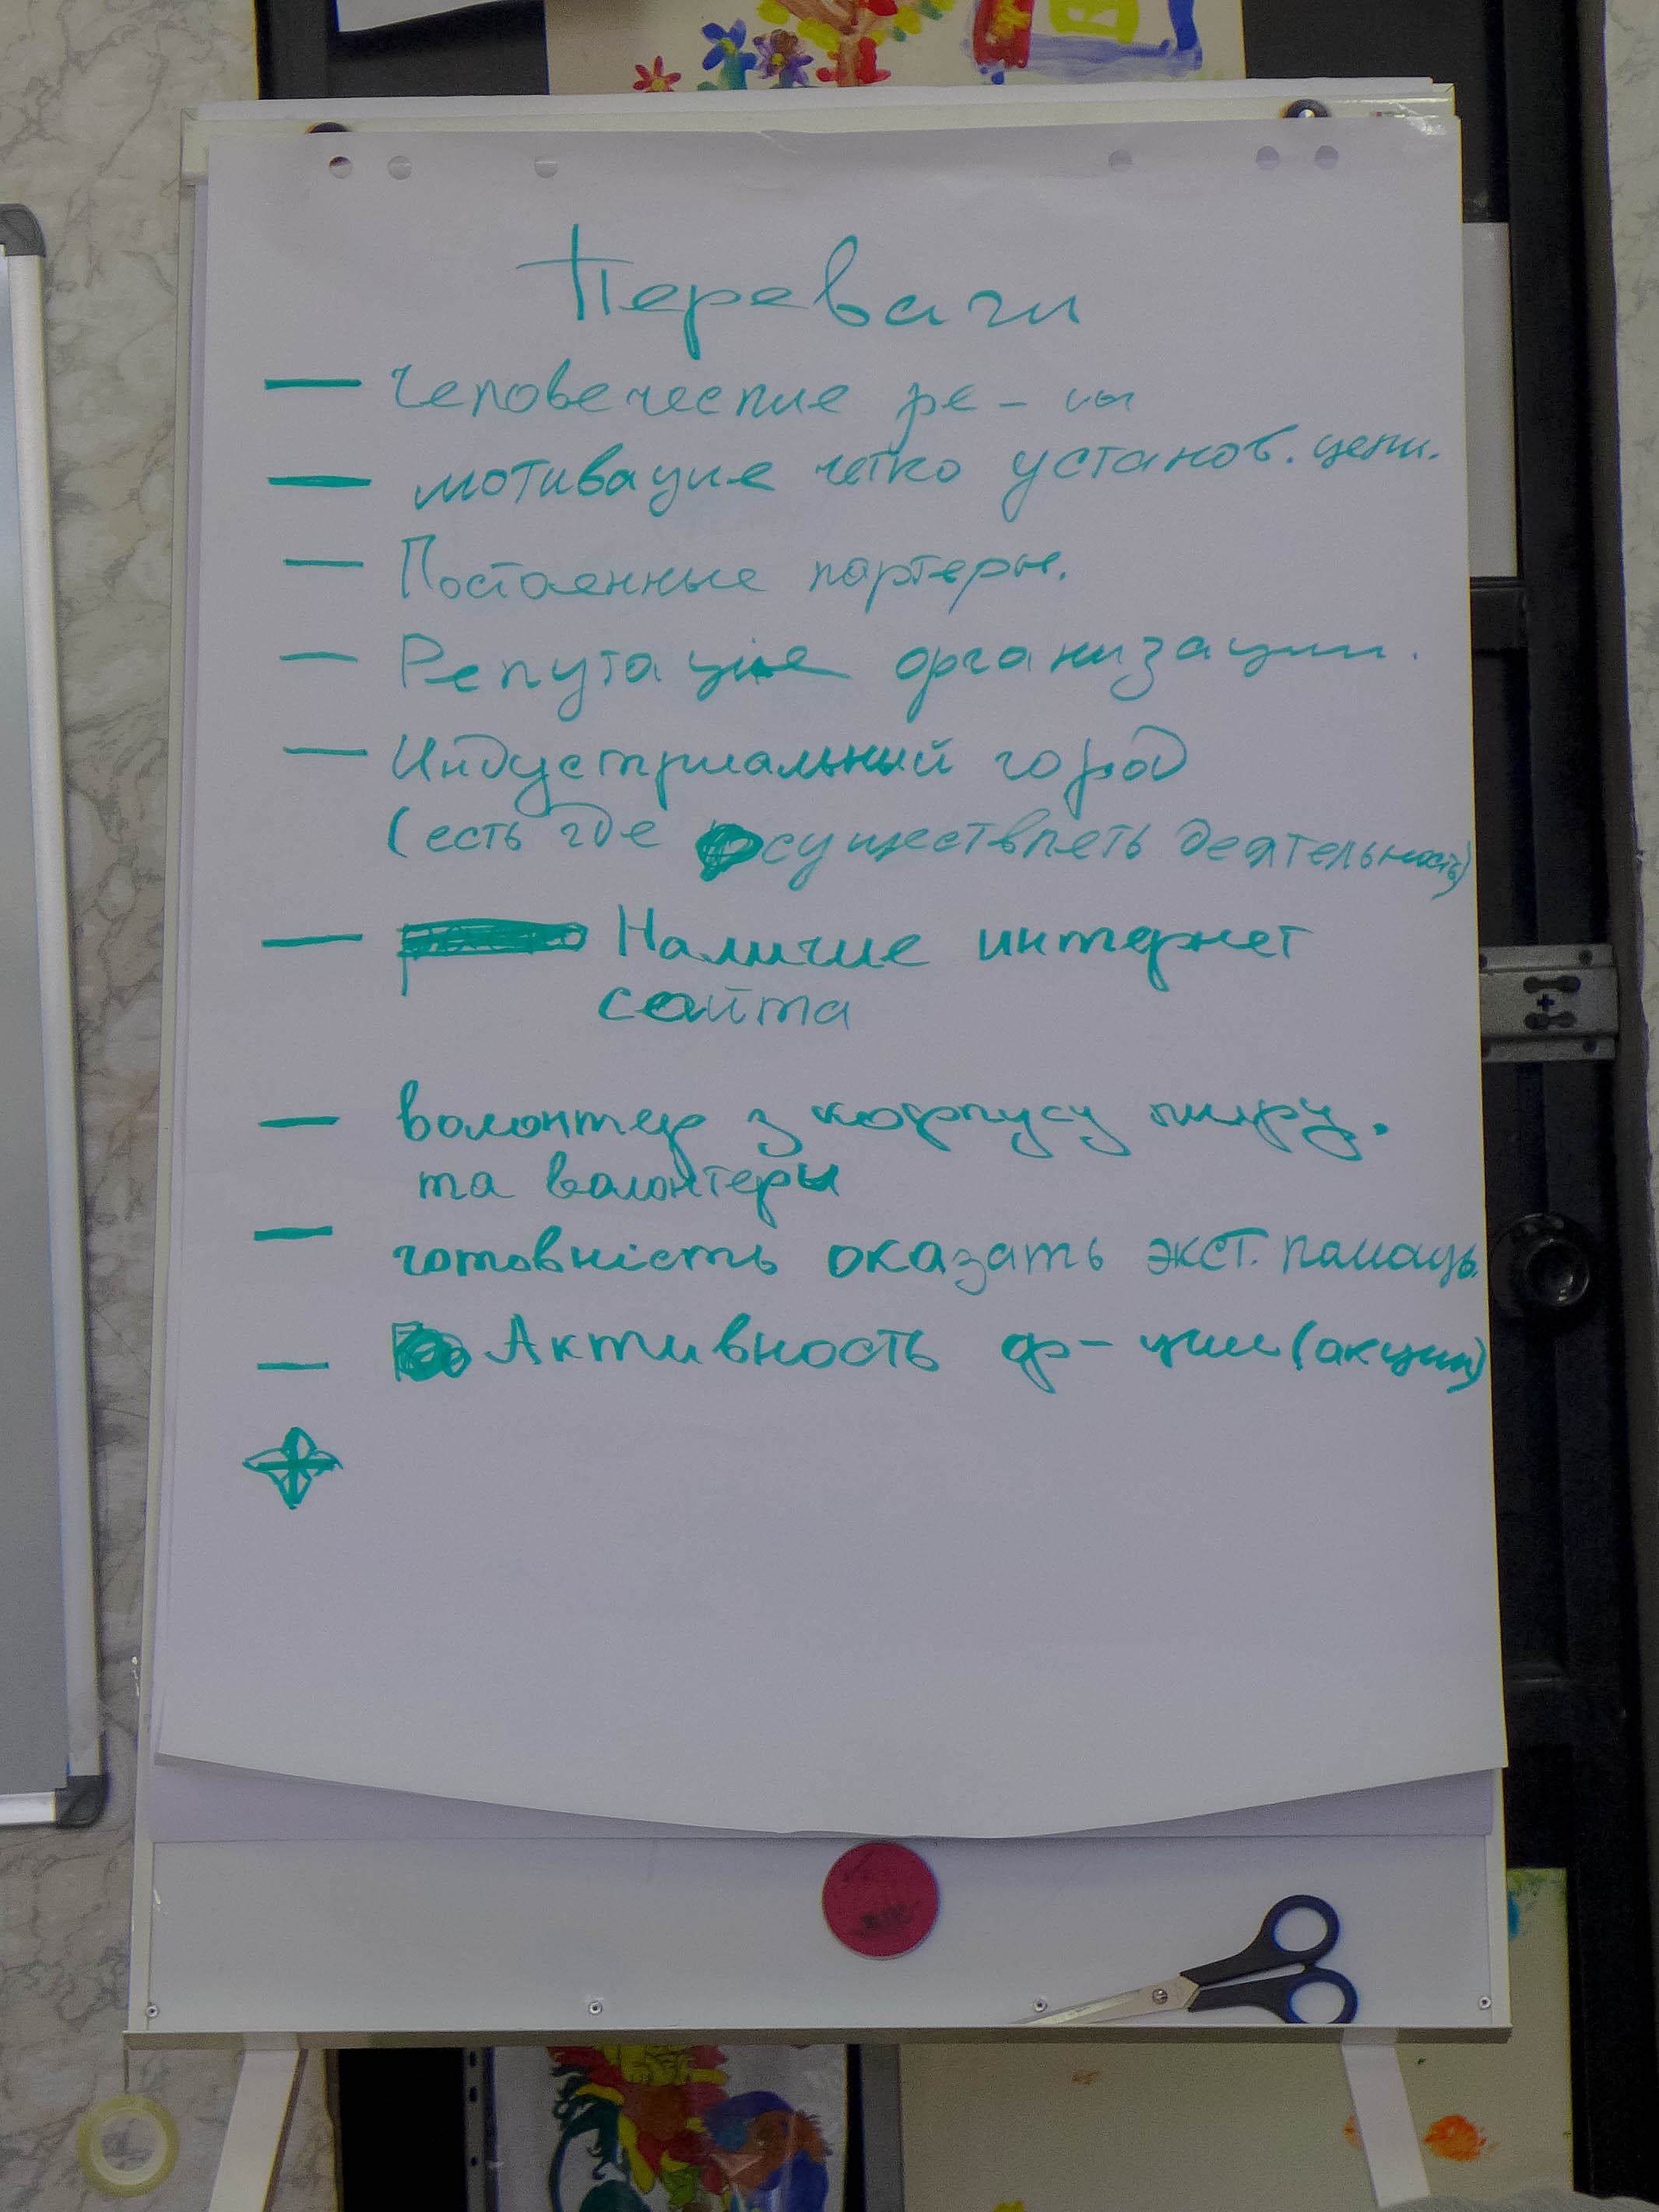 Переваги
— Человеческие ре-сы
— мотивация четко установ. цели.
— Постоянные партеры.
— Репутация организации.
— Индустриальный город
(есть где осуществлять деятельность)
— Наличие интернет
сайта
— волонтер з корпусу миру.
та волонтеры
— готовність оказать экст. помощь.
— Активность ф-ции (акции)